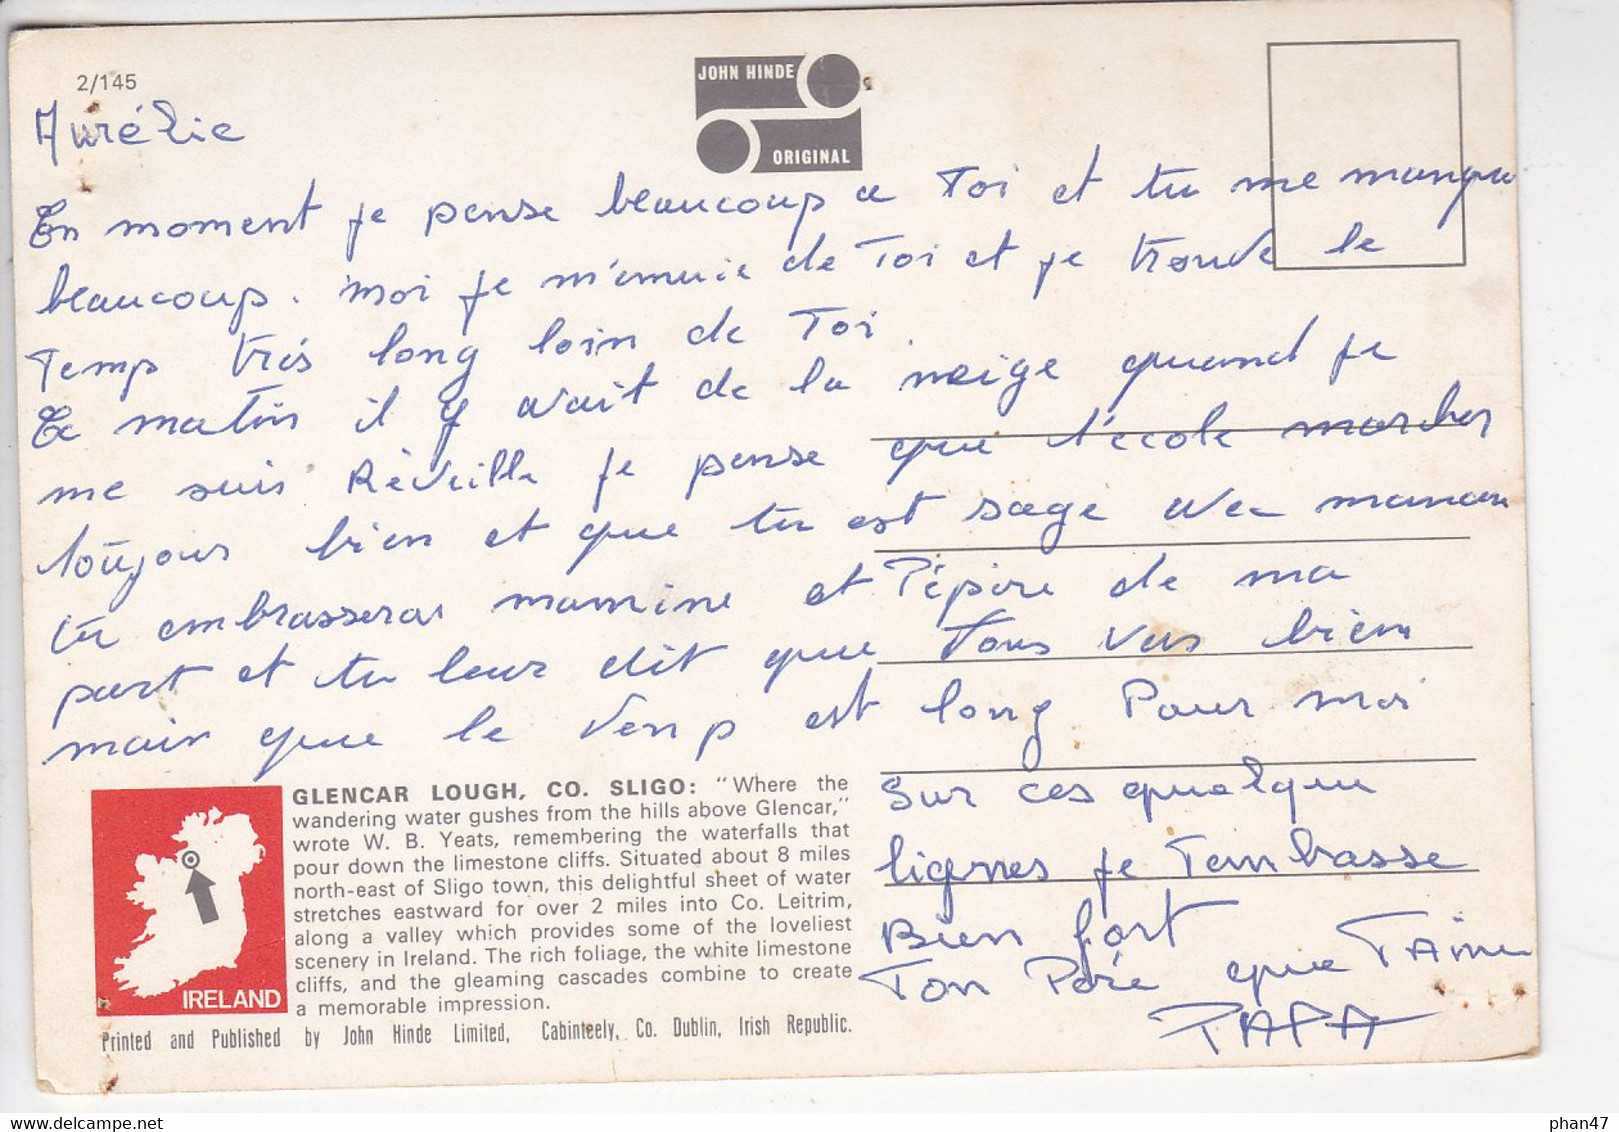 2/145
JOHN HINDE
ORIGINAL
Aurélie
En moment je pense beaucoup a Toi et tu me manque
beaucoup. moi je m'ennuie de Toi et je trouve le
Temp très long loin de Toi.
Ce matin il y avait de la neige quand je
me suis Réveille je pense que l'école marcher
toujours bien et que tu est sage avec maman
tu embrasseras mamine et Pépère de ma
part et tu leur dit que Tous vas bien
mair que le Temp est long Pour moi
Sur ces quelque
lignes je T'embrasse
Bien fort
Ton Père que T'Aime
PAPA
GLENCAR LOUGH, CO. SLIGO: "Where the
wandering water gushes from the hills above Glencar,"
wrote W. B. Yeats, remembering the waterfalls that
pour down the limestone cliffs. Situated about 8 miles
north-east of Sligo town, this delightful sheet of water
stretches eastward for over 2 miles into Co. Leitrim,
along a valley which provides some of the loveliest
scenery in Ireland. The rich foliage, the white limestone
cliffs, and the gleaming cascades combine to create
a memorable impression.
IRELAND
Printed and Published by John Hinde Limited, Cabinteely, Co. Dublin, Irish Republic.
phan47